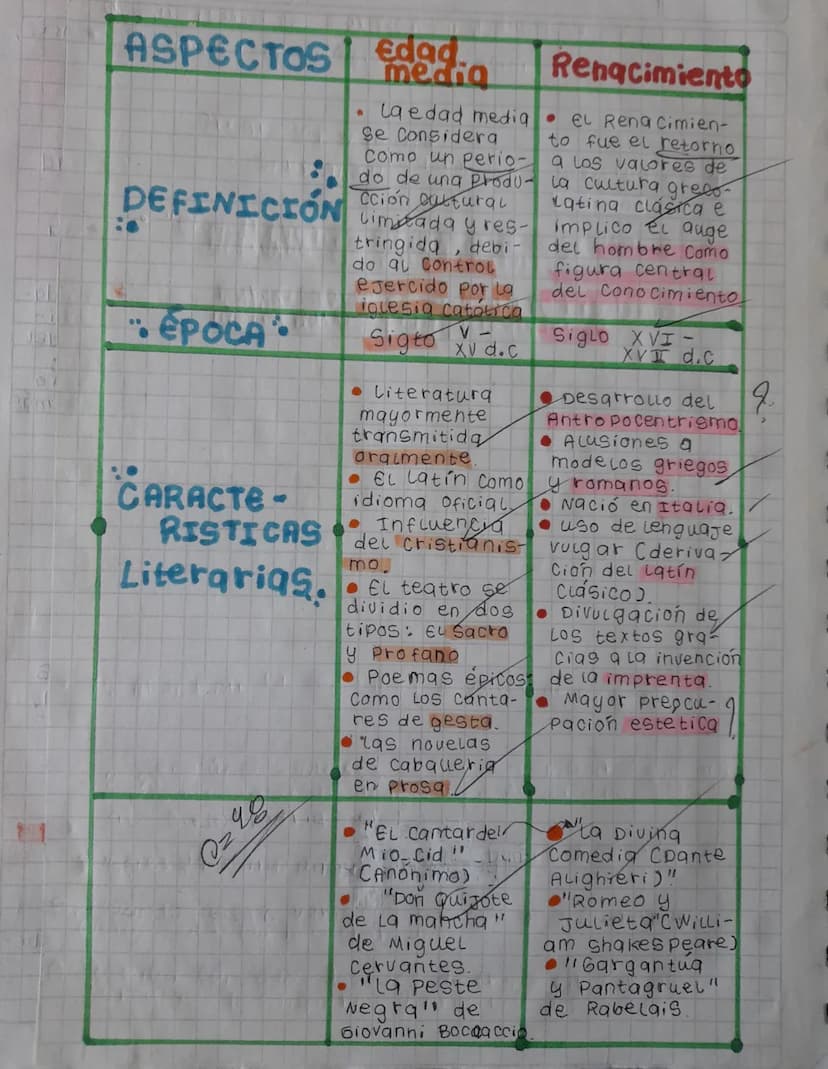 ASPECTOS
Edad
media
Renacimiento
DEFINICIÓN
• La edad media
se considera
como un perio-
do de una produ-
cción cultural
limitada y res-
tringida, debi-
do al control
ejercido por la
iglesia católica
• El Renacimien-
to fue el retorno
a los valores de
la cultura greco-
latina clásica e
implico el auge
del hombre como
figura central
del conocimiento
ÉPOCA
Siglo V -
XV d.c
Siglo XVI -
XVII d.c
CARACTE-
RISTICAS
Literarias.
• Literatura
mayormente
transmitida
oralmente.
• El latín como
idioma oficial.
• Influencia
del cristianis-
mo.
• El teatro se
dividio en dos
tipos: El sacro
y profano
• Poemas épicos:
como los canta-
res de gesta.
• las novelas
de cabaueria
en prosa.
• Desarrollo del
Antropocentrismo.
• Alusiones a
modelos griegos
y romanos.
• Nació en Italia.
• uso de lenguaje
vulgar (deriva-
ción del latín
clásico).
• Divulgación de
los textos gra-
cias a la invención
de la imprenta.
• Mayor preocu-
pación estetica
?
C=48
• "El Cantar del
Mio-Cid"
(Anónimo)
• "Don Quijote
de la mancha"
de Miguel
Cervantes.
• "La peste
Negra" de
Giovanni Boccaccio.
• "La Divina
Comedia (Dante
Alighieri)"
• "Romeo y
Julieta" (Willi-
am shakespeare)
• "Gargantúa
y Pantagruel"
de Rabelais.